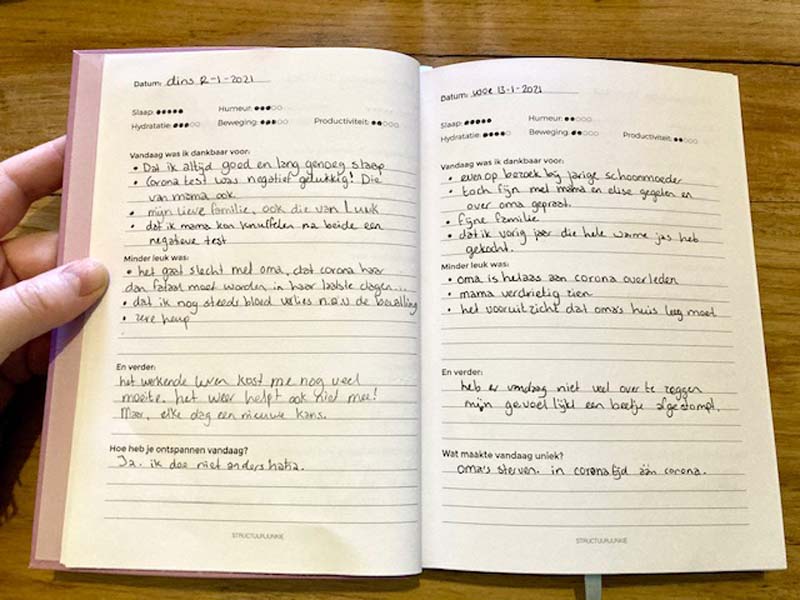 Datum: dins 12-1-2021
Slaap: Humeur:
Hydratatie: Beweging: Productiviteit:
Vandaag was ik dankbaar voor:
• Dat ik altijd goed en lang genoeg slaap
• Corona test was negatief gelukkig! Die
van mama ook
• mijn lieve familie, ook die van Luuk
• dat ik mama kon knuffelen na beide een
negatieve test
Minder leuk was:
• het gaat slecht met oma, dat corona haar
dan fataal moet worden in haar laatste dagen...
• dat ik nog steeds bloed verlies n.a.v de bevalling
• zere heup
En verder:
het werkende leven kost me nog veel
moeite. het weer helpt ook niet mee!
Maar, elke dag een nieuwe kans.
Hoe heb je ontspannen vandaag?
Ja. ik doe niet anders haha.
STRUCTUURJUNKIE
Datum: woe 13-1-2021
Slaap: Humeur:
Hydratatie: Beweging: Productiviteit:
Vandaag was ik dankbaar voor:
• even op bezoek bij jarige schoonmoeder
• toch fijn met mama en elise gegeten en
over oma gepraat.
• fijne familie
• dat ik vorig jaar die hele warme jas heb
gekocht.
Minder leuk was:
• oma is helaas aan corona overleden
• mama verdrietig zien
• het vooruitzicht dat oma's huis leeg moet
En verder:
heb er vandaag niet veel over te zeggen
mijn gevoel lijkt een beetje afgestompt.
Wat maakte vandaag uniek?
oma's sterven. in coronatijd áán corona.
STRUCTUURJUNKIE